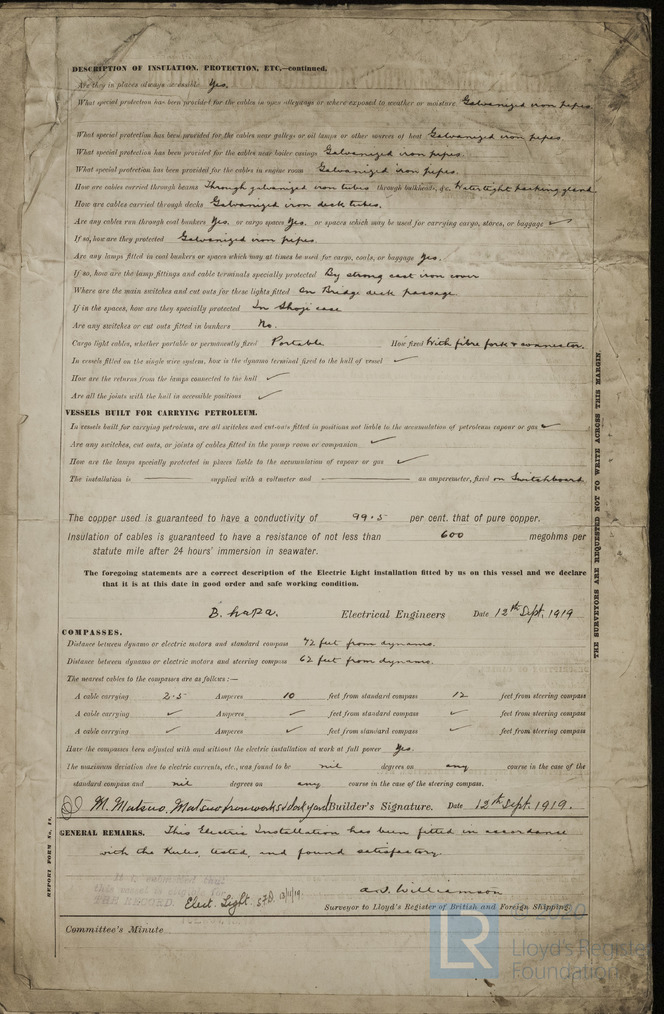 DESCRIPTION OF INSULATION, PROTECTION, ETC.—continued.
Are they in places always accessible Yes.
What special protection has been provided for the cables in open alleyways or where exposed to weather or moisture Galvanized iron pipes.
What special protection has been provided for the cables near galleys or oil lamps or other sources of heat Galvanized iron pipes.
What special protection has been provided for the cables near boiler casings Galvanized iron pipes.
What special protection has been provided for the cables in engine room Galvanized iron pipes.
How are cables carried through beams Through galvanized iron tubes through bulkheads, &c. Watertight packing gland.
How are cables carried through decks Galvanized iron deck tubes.
Are any cables run through coal bunkers Yes. or cargo spaces Yes. or spaces which may be used for carrying cargo, stores, or baggage ✓
If so, how are they protected Galvanized iron pipes.
Are any lamps fitted in coal bunkers or spaces which may at times be used for cargo, coals, or baggage Yes.
If so, how are the lamp fittings and cable terminals specially protected By strong cast iron cover
Where are the main switches and cut outs for these lights fitted In Bridge deck passage.
If in the spaces, how are they specially protected In case
Are any switches or cut outs fitted in bunkers No.
Cargo light cables, whether portable or permanently fixed Portable How fixed With fibre fork & connector.
In vessels fitted on the single wire system, how is the dynamo terminal fixed to the hull of vessel ✓
How are the returns from the lamps connected to the hull ✓
Are all the joints with the hull in accessible positions ✓
VESSELS BUILT FOR CARRYING PETROLEUM.
In vessels built for carrying petroleum, are all switches and cut-outs fitted in positions not liable to the accumulation of petroleum vapour or gas ✓
Are any switches, cut outs, or joints of cables fitted in the pump room or companion ✓
How are the lamps specially protected in places liable to the accumulation of vapour or gas ✓
The installation is — supplied with a voltmeter and — an amperemeter, fixed on Switchboard
The copper used is guaranteed to have a conductivity of 99.5 per cent. that of pure copper.
Insulation of cables is guaranteed to have a resistance of not less than 600 megohms per
statute mile after 24 hours' immersion in seawater.
The foregoing statements are a correct description of the Electric Light installation fitted by us on this vessel and we declare
that it is at this date in good order and safe working condition.
Electrical Engineers Date 12th Sept. 1919
COMPASSES.
Distance between dynamo or electric motors and standard compass 72 feet from dynamo.
Distance between dynamo or electric motors and steering compass 62 feet from dynamo.
The nearest cables to the compasses are as follows:—
A cable carrying 2.5 Amperes 10 feet from standard compass 12 feet from steering compass
A cable carrying ✓ Amperes ✓ feet from standard compass ✓ feet from steering compass
A cable carrying ✓ Amperes ✓ feet from standard compass ✓ feet from steering compass
Have the compasses been adjusted with and without the electric installation at work at full power Yes.
The maximum deviation due to electric currents, etc., was found to be nil degrees on any course in the case of the
standard compass and nil degrees on any course in the case of the steering compass.
M. Matsuo. Matsuo Ironworks & dockyard Builder's Signature. Date 12th Sept. 1919.
GENERAL REMARKS. This Electric Installation has been fitted in accordance
with the Rules, tested, and found satisfactory.
A. J. Williamson
Surveyor to Lloyd's Register of British and Foreign Shipping.
THE RECORD. Elect. Light. 13/11/19.
Committee's Minute
THE SURVEYORS ARE REQUESTED NOT TO WRITE ACROSS THIS MARGIN.
© 2020
LR
Lloyd's Register
Foundation